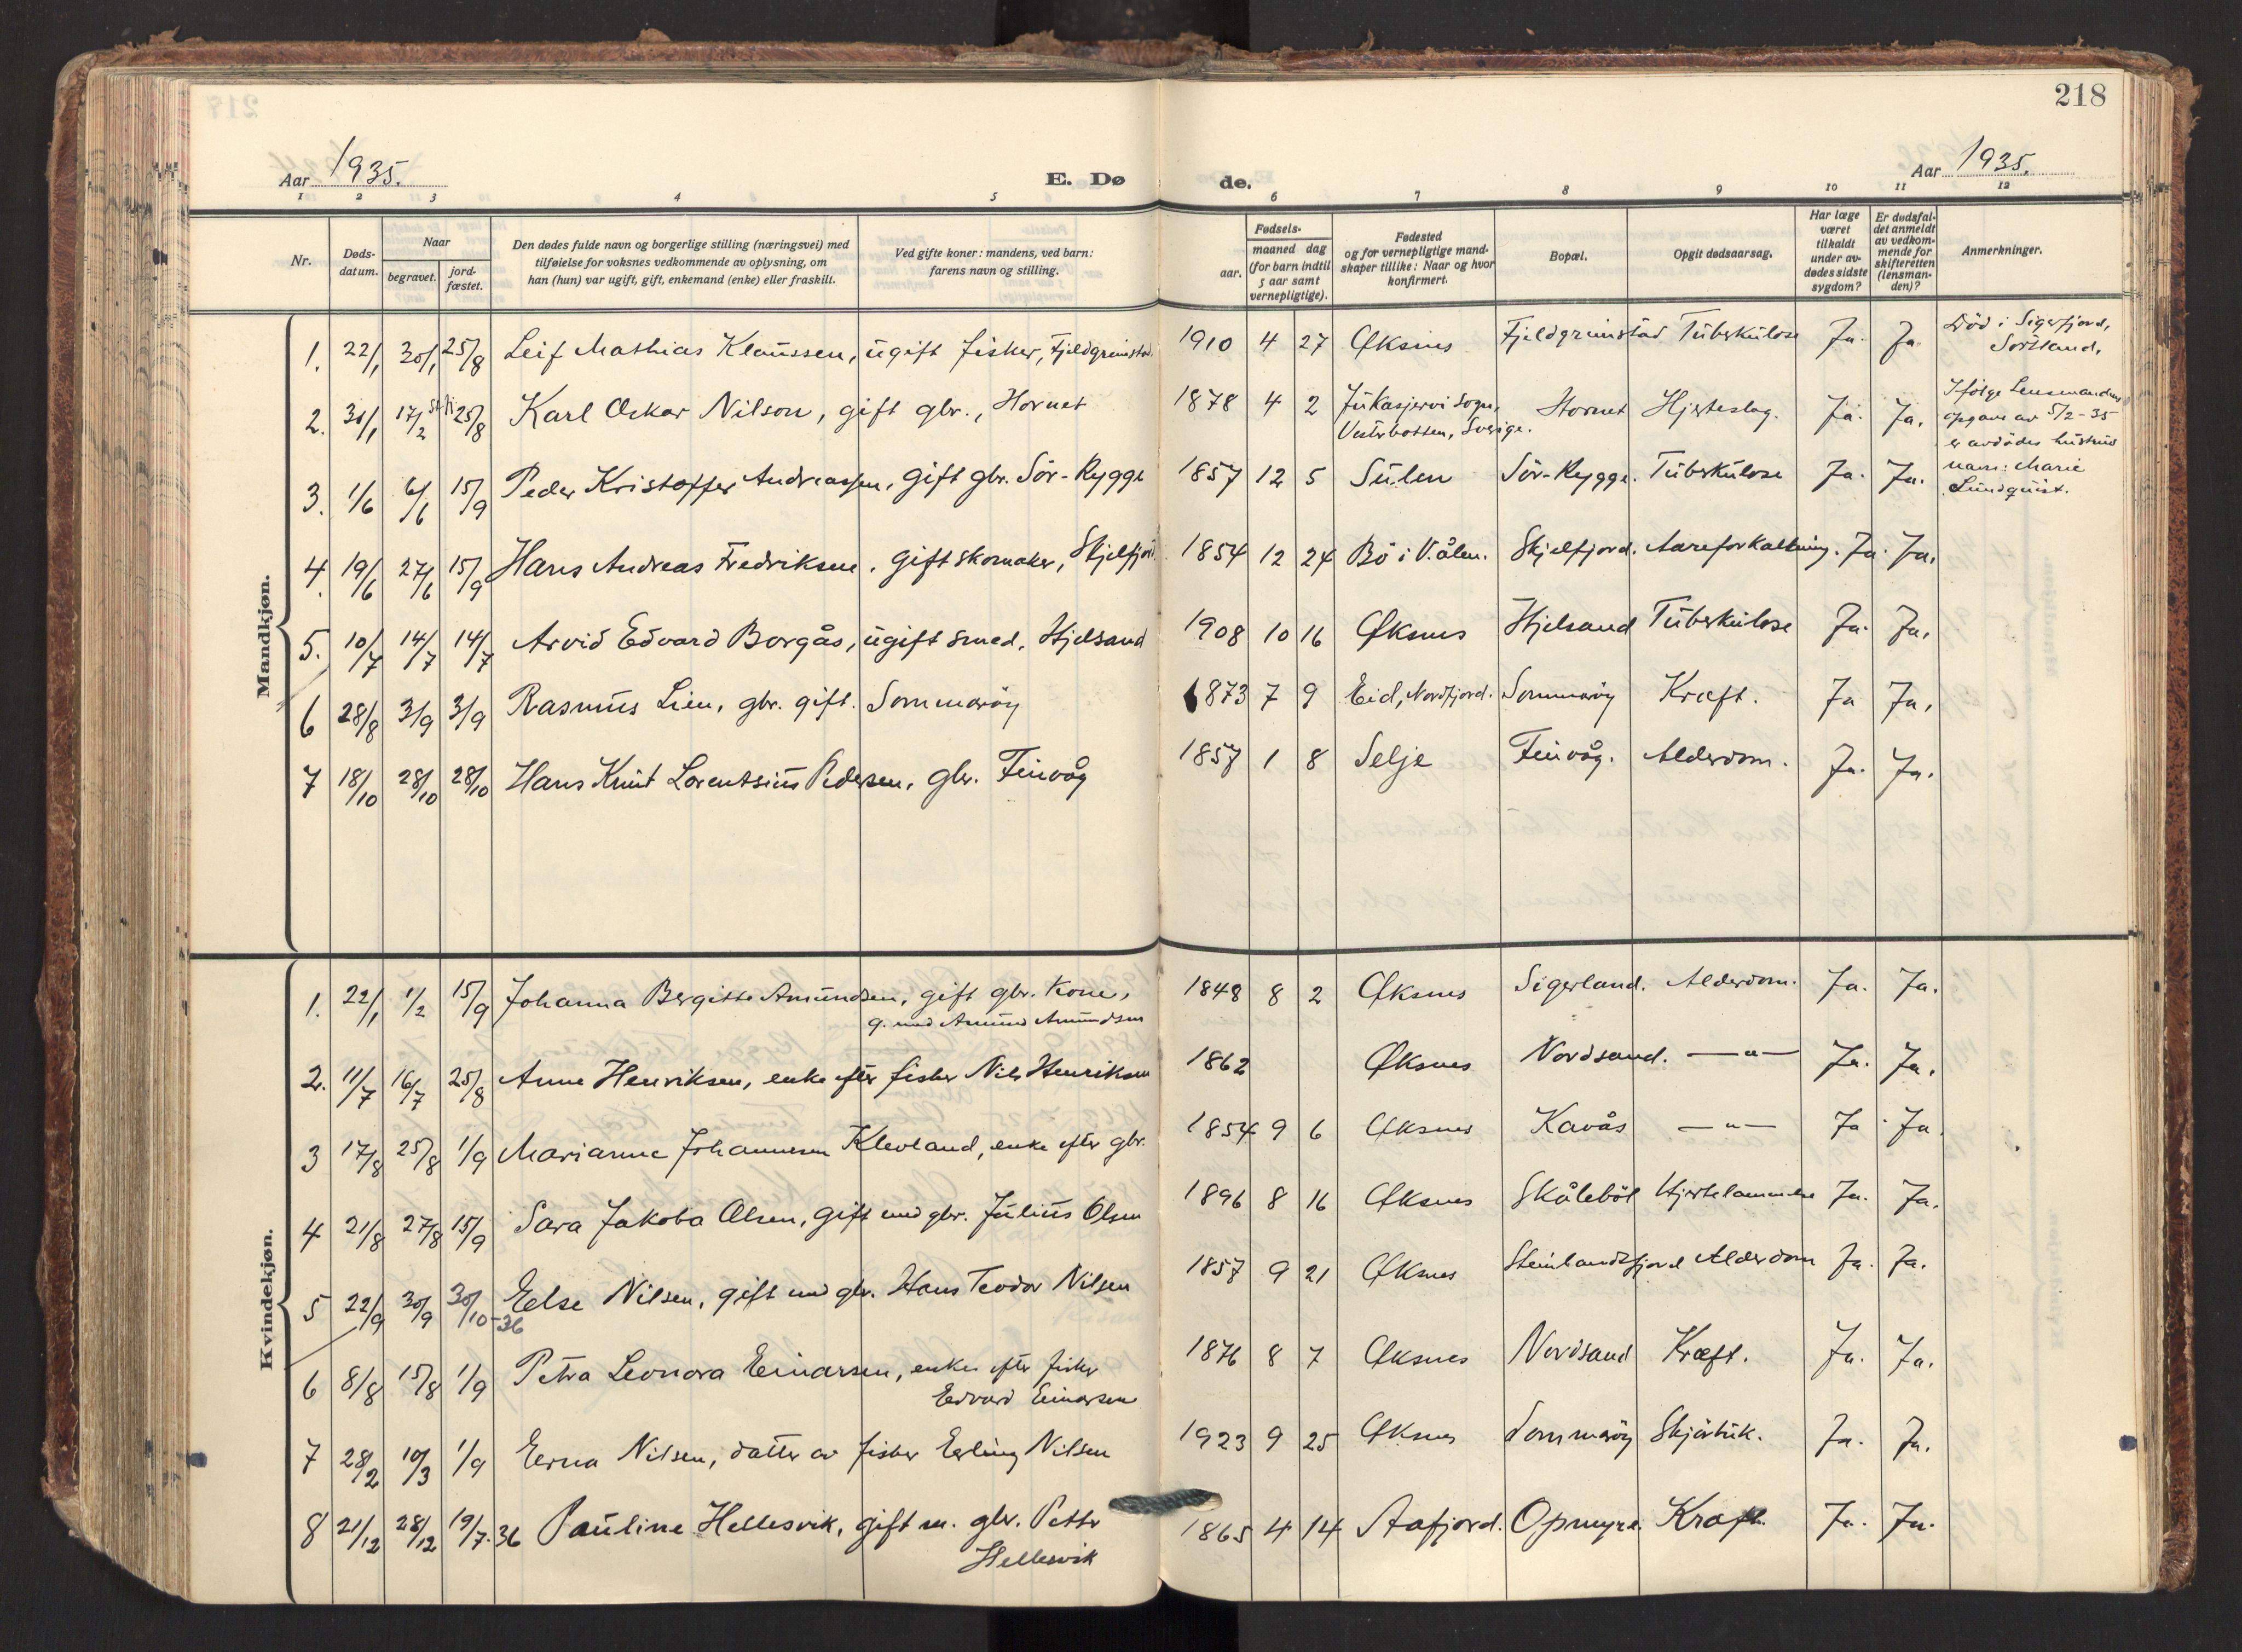 218
Aar 1935.
E. Dø
de.
Aar 1935.
1 2 3 4 5 6 7 8 9 10 11 12
Nr.
Døds-
datum.
Naar
begravet.
jord-
fæstet.
Den dødes fulde navn og borgerlige stilling (næringsvei) med
tilføielse for voksnes vedkommende av oplysning, om
han (hun) var ugift, gift, enkemand (enke) eller fraskilt.
Ved gifte koner: mandens, ved barn:
farens navn og stilling.
Fødsels-
aar.
maaned dag
(for barn indtil
5 aar samt
vernepligtige).
Fødested
og for vernepligtige mand-
skaper tillike: Naar og hvor
konfirmert.
Bopæl.
Opgit dødsaarsag.
Har læge
været
tilkaldt
under av-
dødes sidste
sygdom?
Er dødsfal-
det anmeldt
av vedkom-
mende for
skifteretten
(lensman-
den)?
Anmerkninger.
Mandkjøn.
1. 22/1 30/1 25/8 Leif Mathias Klaussen, ugift fisker, Fjeldgrimstad. 1910 4 27 Øksnes Fjeldgrimstad Tuberkulose Ja. Ja
Död i Sigerfjord,
Sortland.
2. 31/1 17/2 25/8 Karl Oskar Nilson, gift gbr., Hornet 1878 4 2 Jukasjervi sogn, Hornet Hjerteslag. Ja. Ja.
Vesterbotten, Sverige.
Ifölge Lensmandens
opgave av 5/2-35
er avdödes hustrus
navn: Marie
Lundquist.
3. 1/6 6/6 15/9 Peder Kristoffer Andreassen, gift gbr. Sör-Rygge 1857 12 5 Sulen Sör-Rygge. Tuberkulose Ja. Ja.
4. 19/6 27/6 15/9 Hans Andreas Fredriksen, gift skomaker, Skjelfjord 1854 12 24 Bö i V.ålen. Skjelfjord. Aareforkalkning. Ja. Ja.
5. 10/7 14/7 14/7 Arvid Edvard Borgås, ugift smed, Hjelsand 1908 10 16 Øksnes Hjelsand Tuberkulose Ja. Ja.
6 28/8 3/9 3/9 Rasmus Lien, gbr. gift. Sommaröy 1873 7 9 Eid, Nordfjord. Sommaröy Kræft. Ja Ja.
7 18/10 28/10 28/10 Hans Knut Lorentsius Pedersen, gbr. Finvåg 1857 1 8 Selje Finvåg. Alderdom. Ja. Ja.
Kvindekjøn.
1. 22/1 1/2 15/9 Johanna Bergitte Amundsen, gift gbr. kone, 1848 8 2 Øksnes Sigerland. Alderdom. Ja. Ja.
g. med Amund Amundsen
2. 11/7 16/7 25/8 Anne Henriksen, enke efter fisker Nils Henriksen 1862 Øksnes Nordsand. —„— Ja. Ja.
3 17/8 25/8 1/9 Marianne Johannesen Klevland, enke efter gbr. 1854 9 6 Øksnes Kavås —„— Ja Ja.
4 21/8 27/8 15/9 Sara Jakoba Olsen, gift med gbr. Julius Olsen 1896 8 16 Øksnes Skåleböl Hjertelammelse Ja. Ja.
5 22/9 30/9 30/10-36 Eelse Nilsen, gift med gbr. Hans Teodor Nilsen 1857 9 21 Øksnes Steinlandsfjord Alderdom Ja. Ja.
6 8/8 15/8 1/9 Petra Leonora Einarsen, enke efter fisker 1876 8 7 Øksnes Nordsand Kræft. Ja. Ja.
Edvard Einarsen
7 28/2 10/3 1/9 Erna Nilsen, datter av fisker Erling Nilsen 1923 9 25 Øksnes Sommaröy Skjörbuk. Ja. Ja.
8 21/12 28/12 19/7-36 Pauline Hellesvik, gift m. gbr. Petter 1865 4 14 Aafjord. Opmyre. Kræft. Ja. Ja.
Hellesvik